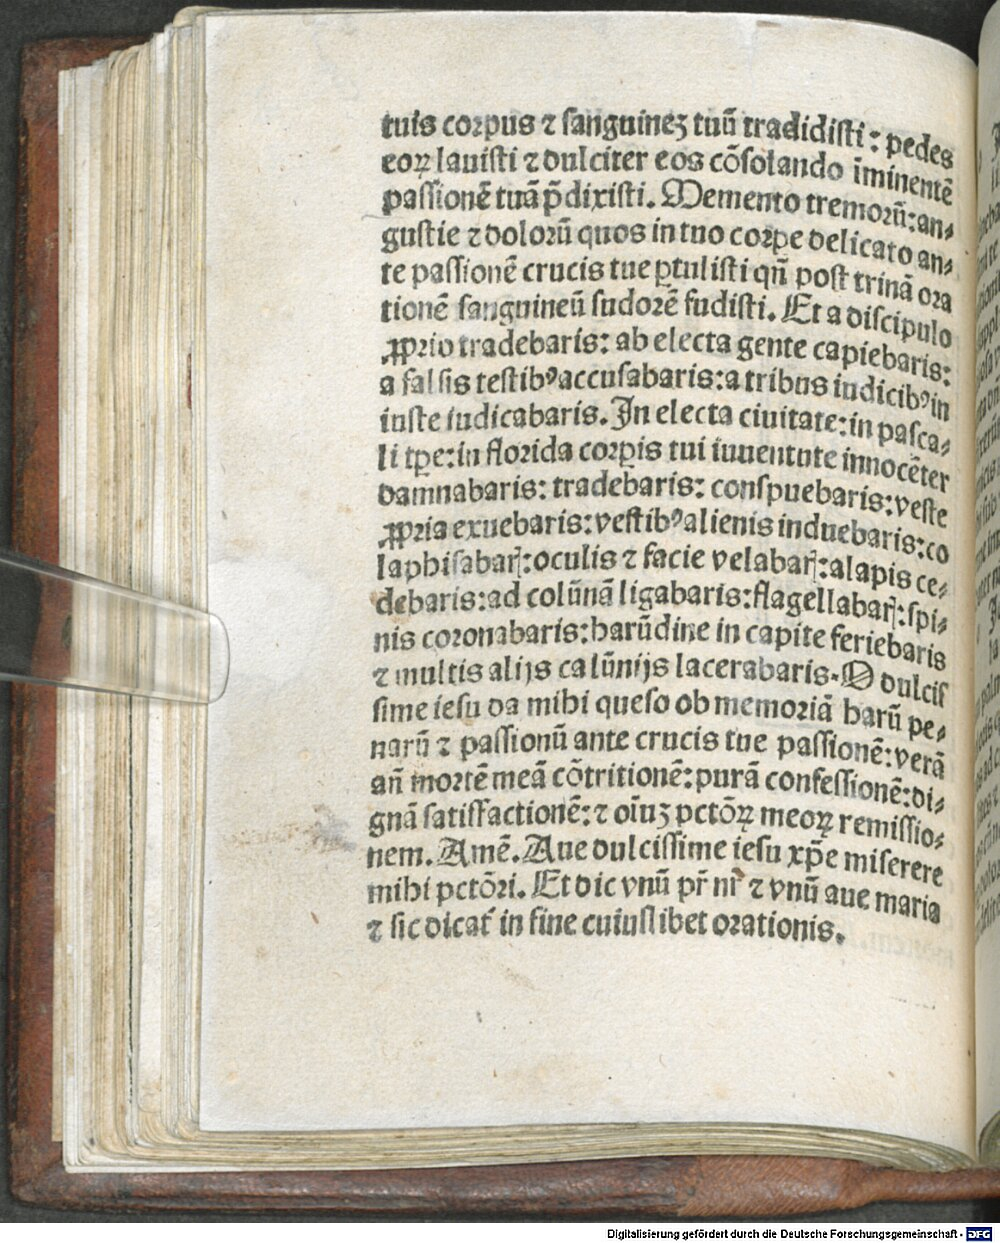 tuis corpus ⁊ sanguineꝫ tuū tradidisti: pedes
eoꝝ lauisti ⁊ dulciter eos cōsolando īminentē
passionē tuā p̄dixisti. Memento tremorū: an⸗
gustie ⁊ dolorū quos in tuo corꝑe delicato an⸗
te passionē crucis tue ꝑtulisti qn̄ post trinā ora
tionē sanguineū sudorē fudisti. Et a discipulo
ꝓprio tradebaris: ab electa gente capiebaris:
a falsis testibꝰ accusabaris: a tribus iudicibꝰ in
iuste iudicabaris. In electa ciuitate: in pasca⸗
li tꝑe: in florida corꝑis tui iuuentute innocēter
damnabaris: tradebaris: conspuebaris: veste
ꝓpria exuebaris: vestibꝰ alienis induebaris: co
laphisabarꝭ: oculis ⁊ facie velabarꝭ: alapis ce⸗
debaris: ad colūnā ligabaris: flagellabarꝭ: spi⸗
nis coronabaris: harūdine in capite feriebaris
⁊ multis alijs calūnijs lacerabaris. O dulcis
sime iesu da mihi queso ob memoriā harū pe⸗
narū ⁊ passionū ante crucis tue passionē: verā
an̄ mortē meā cōtritionē: purā confessionē: di⸗
gnā satisfactionē: ⁊ oīuꝫ pctōꝝ meoꝝ remissio⸗
nem. Amē. Aue dulcissime iesu xp̄e miserere
mihi pctōri. Et dic vnū pr̄ nr̄ ⁊ vnū aue maria
⁊ sic dicat᷑ in fine cuiuslibet orationis.
Digitalisierung gefördert durch die Deutsche Forschungsgemeinschaft - DFG